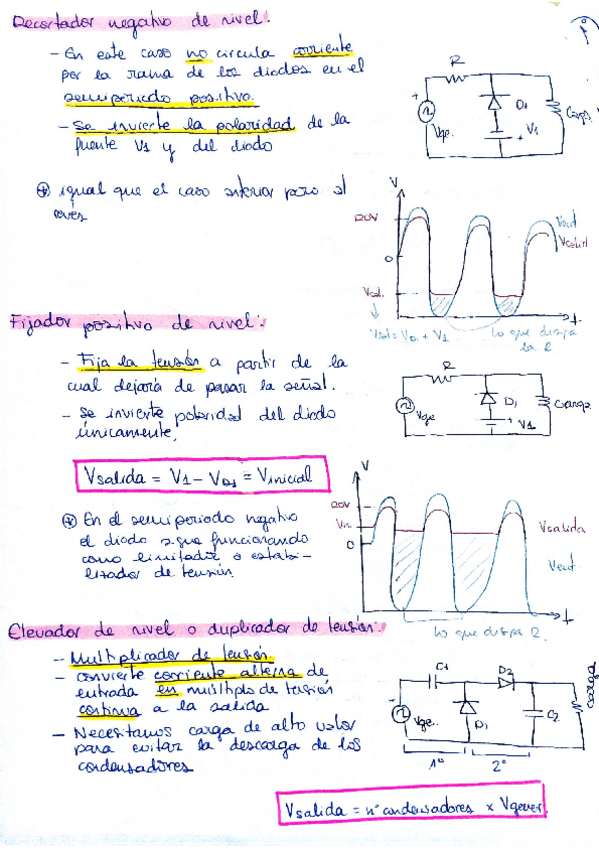 Recortador negativo de nivel:
- En este caso no circula corriente
por la rama de los diodos en el
semiperiodo positivo.
- Se invierte la polaridad de la
fuente V1 y del diodo
igual que el caso anterior pero al
revés
R
D1
Vge.
V1
Carga
V
20V
0
Vsal.
Vsal = VD1 + V1
Vent
Vsalid
t
lo que disipa
la R
Fijador positivo de nivel:
- Fija la tensión a partir de la
cual dejará de pasar la señal.
- Se invierte polaridad del diodo
únicamente.
Vsalida = V1 - VD1 = Vinicial
En el semiperiodo negativo
el diodo sigue funcionando
como limitador o estabi-
lizador de tensión.
R
Vge
D1
V1
Carga
V
20V
Vin
0
Vsalida
Vent
t
lo que disipa R.
Elevador de nivel o duplicador de tensión:
- Multiplicador de tensión
- convierte corriente alterna de
entrada en múltiplo de tensión
continua a la salida
- Necesitamos carga de alto valor
para evitar la descarga de los
condensadores
C1
D2
Vge..
D1
C2
carga
1º
2º
Vsalida = nº condensadores x Vgever.